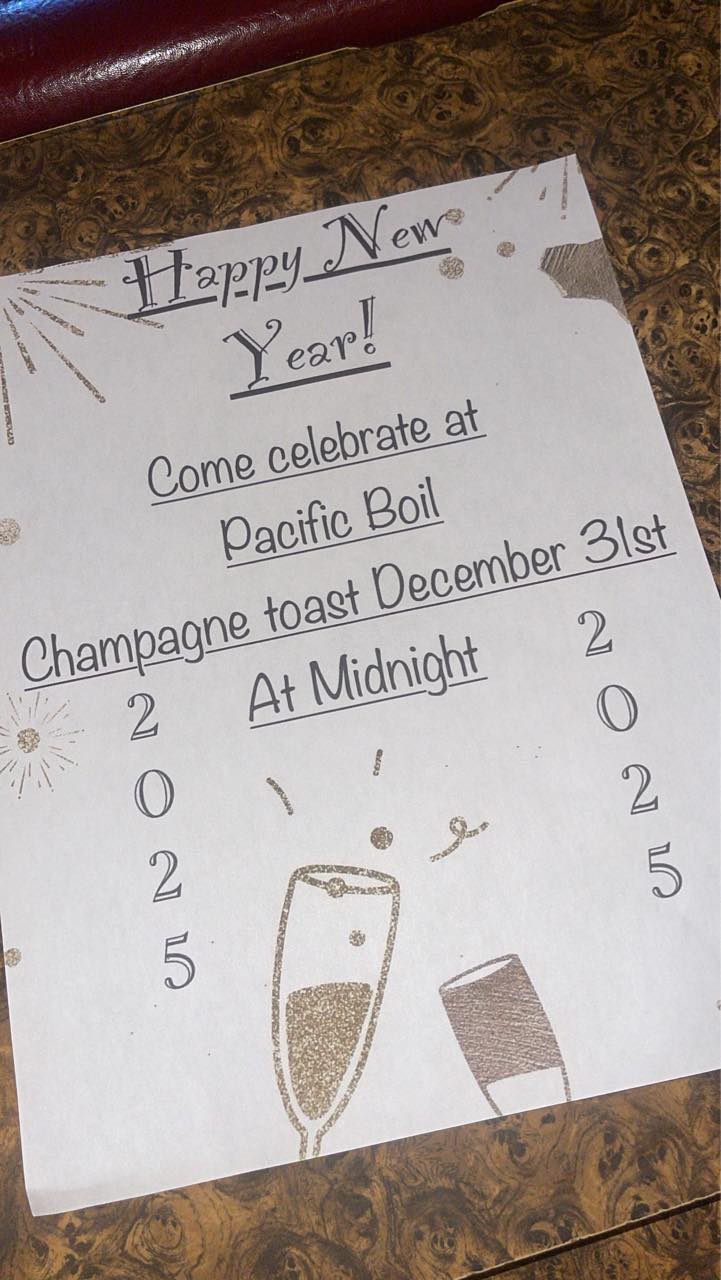 Happy New
Year!
Come celebrate at
Pacific Boil
Champagne toast December 31st
At Midnight
2
0
2
5
2
0
2
5